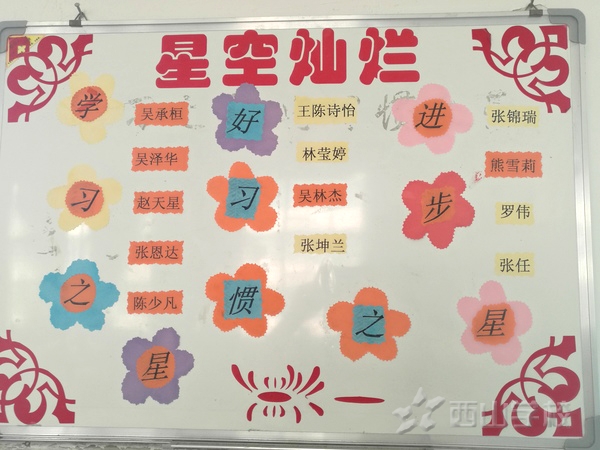 星空灿烂
学习之星
吴承桓
吴泽华
赵天星
张恩达
陈少凡
好习惯之星
王陈诗怡
林莹婷
吴林杰
张坤兰
进步
张锦瑞
熊雪莉
罗伟
张任
西山学校